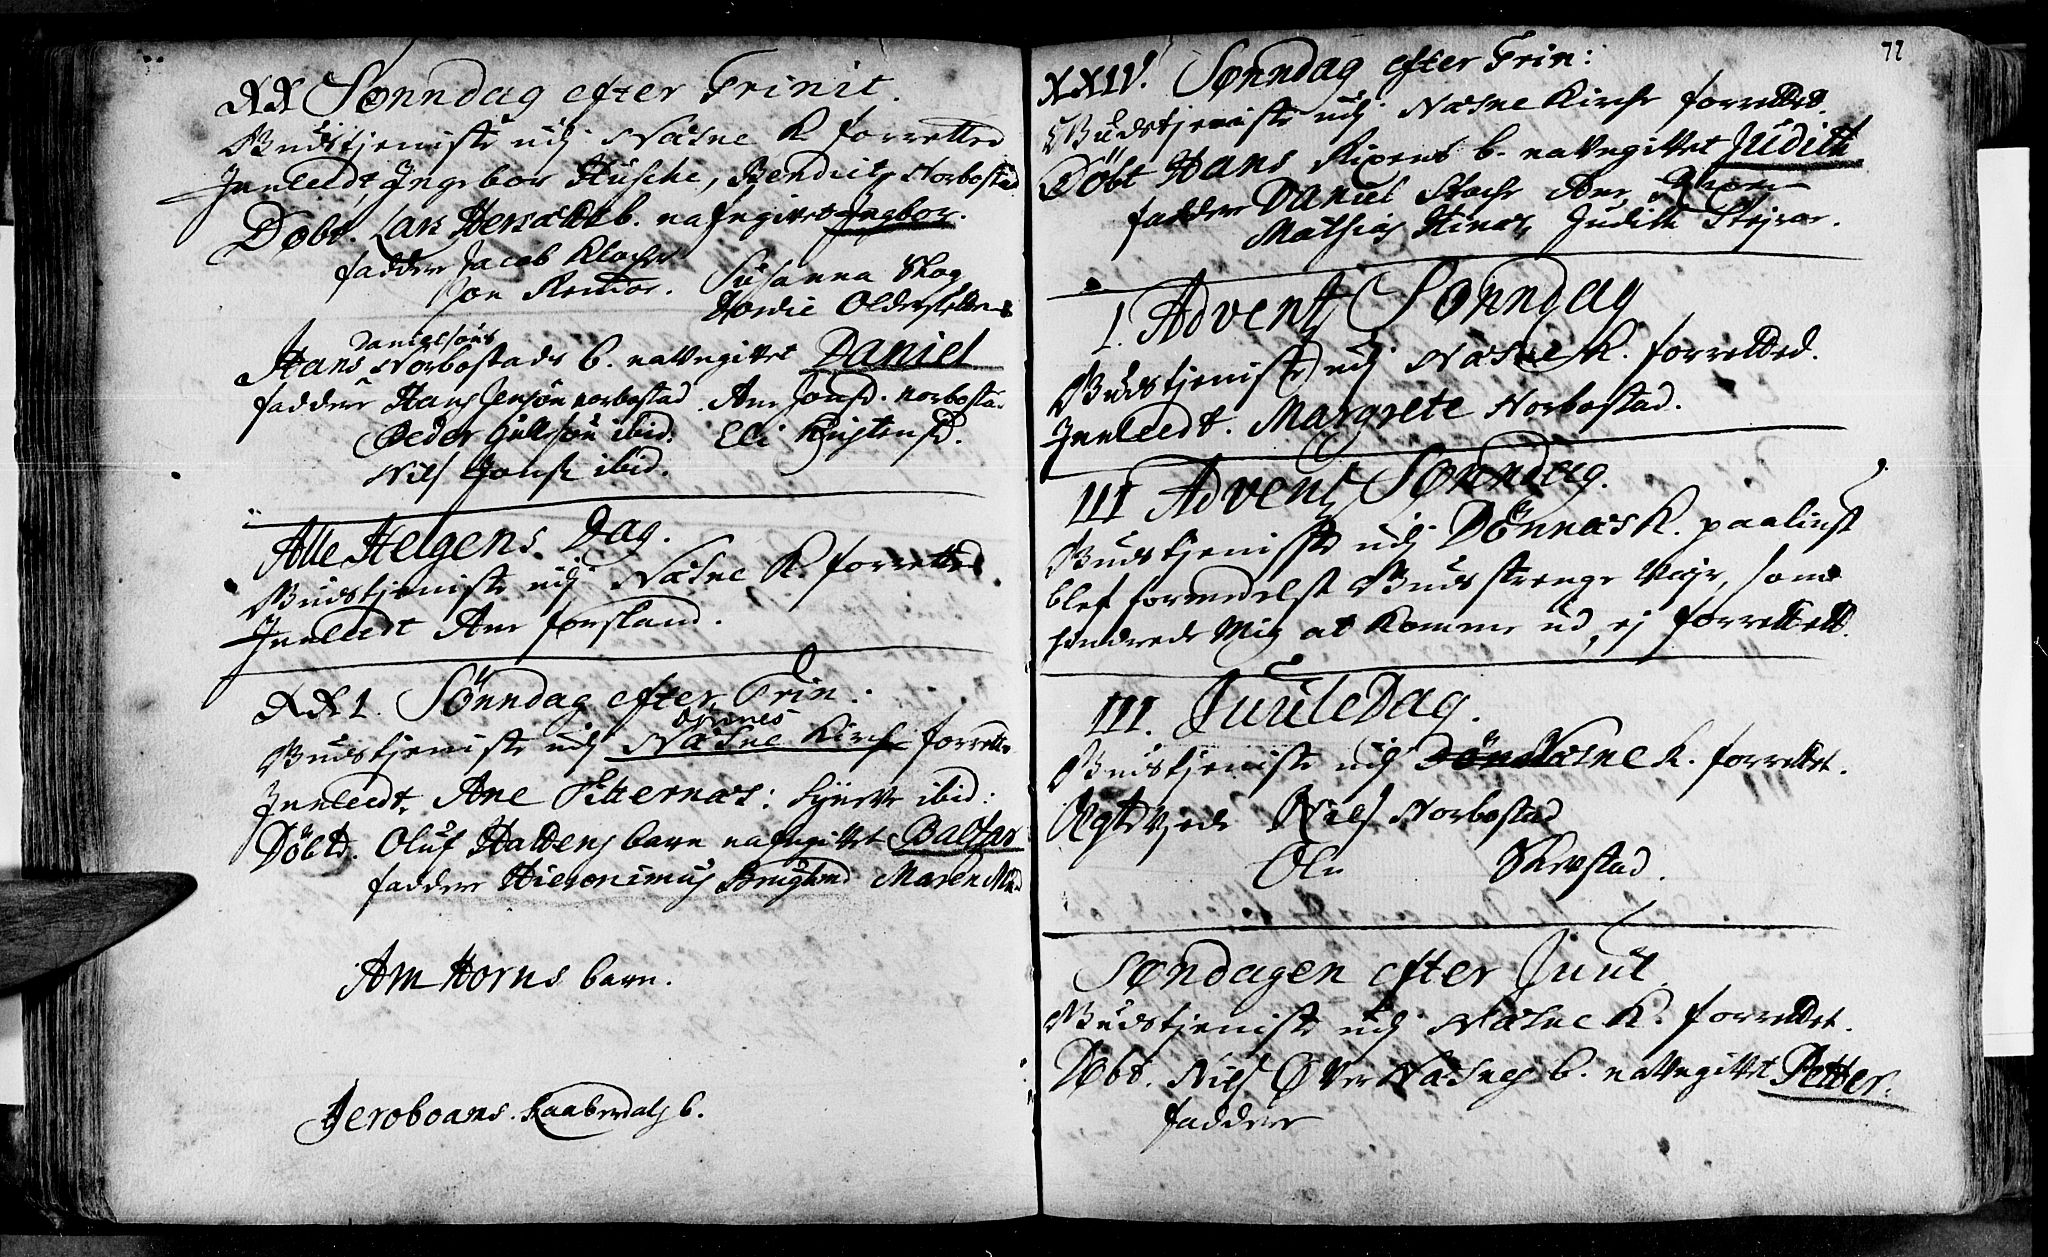 XX Sønndag efter Trinit.
Gudstjeniste udj Næsne K. forretted
Innleedt, Ingebor Husche, Bendict Norbostad
Døbt. Lars b. nafngivet Ingbor.
faddere Jacob Klocher Susanna Skog
Jon Remdor.
Danielsøns
Hans Norbostads b. navngivet Daniel
faddere Hans Jensøn norbostad. Ane Jonsd. norbosta
Peder ibid. Eli Kristensd.
Nils Jonsøn ibid.
Alle Helgens Dag.
Gudstjeniste udj Næsne K. forretted.
Innleedt Ane forsland.
XXI. Sønndag efter Trin:
Dønnes
Gudstjeniste udj Næsne Kirche forrette
Innleedt. Ane Titternæs: Synøve ibid:
Döbtd. Oluf Haldens barn nafngivet Baltzar
faddere Hieronimus Maren
Am Horns barn.
Jeroboans. b.
77
XXIV. Sønndag efter Trin:
Gudstjeniste udj Næsne Kirche forrettet.
Döbt Hans Ripens b. navngivet Judith
faddere Daniel Ane
Mathias Judith
I. Advents Sønndag
Gudstjeniste udj Næsne K. forretted.
Innleedt. Margrete Norbostad.
III Advents Sønndag.
Gudstjenisste udj Dönnæs K. paalinst
blef formedelst Guds strenge Vejr, som
hindrede Mig at komme ud, ej forrettett.
III. JuuleDag.
Gudstjeniste udj Dön Næsne K. forrettet.
Ægtevjede Niels Norbostad
Ole
Søndagen efter Juul
Gudstjeniste udj Næsne K. forrettet.
Døbt. Niels Over Næsnes b. navngivet Petter.
faddere